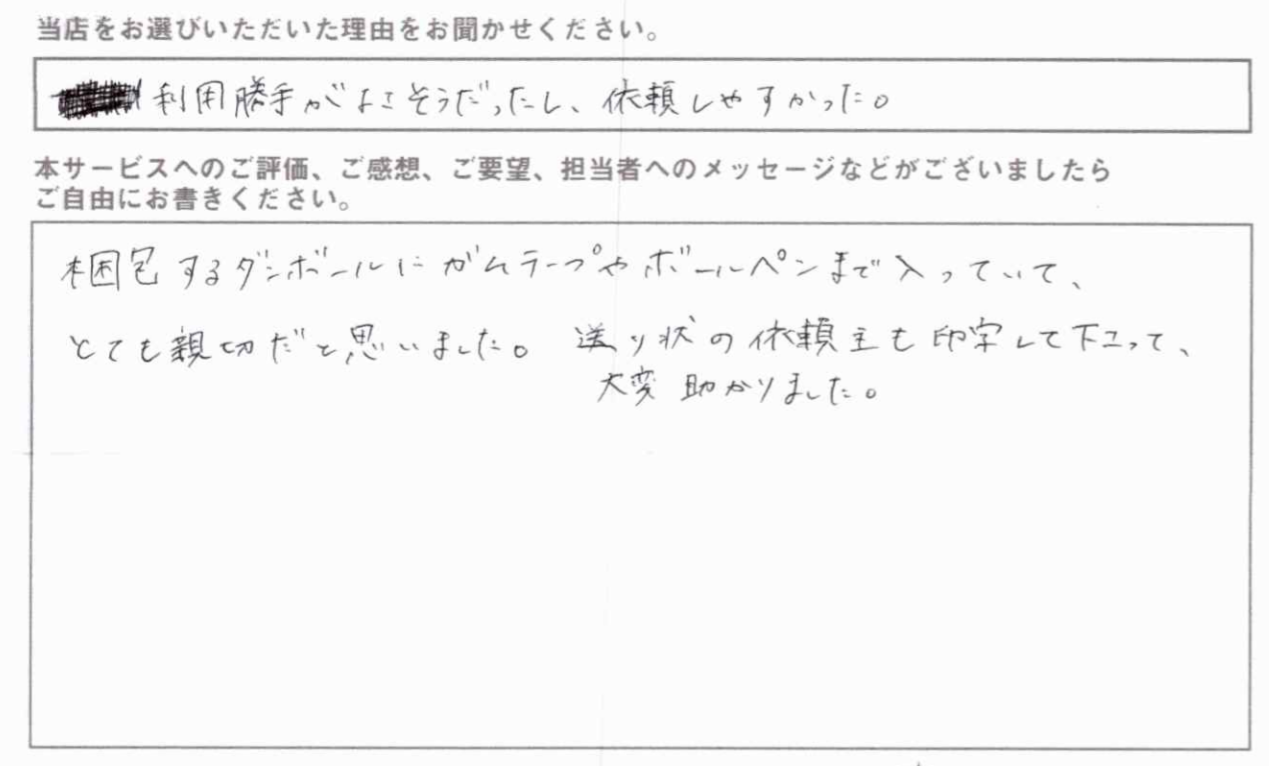 当店をお選びいただいた理由をお聞かせください。
利用勝手がよさそうだったし、依頼しやすかった。
本サービスへのご評価、ご感想、ご要望、担当者へのメッセージなどがございましたら
ご自由にお書きください。
梱包するダンボールにガムテープやボールペンまで入っていて、
とても親切だと思いました。送り状の依頼主も印字して下さって、
大変助かりました。